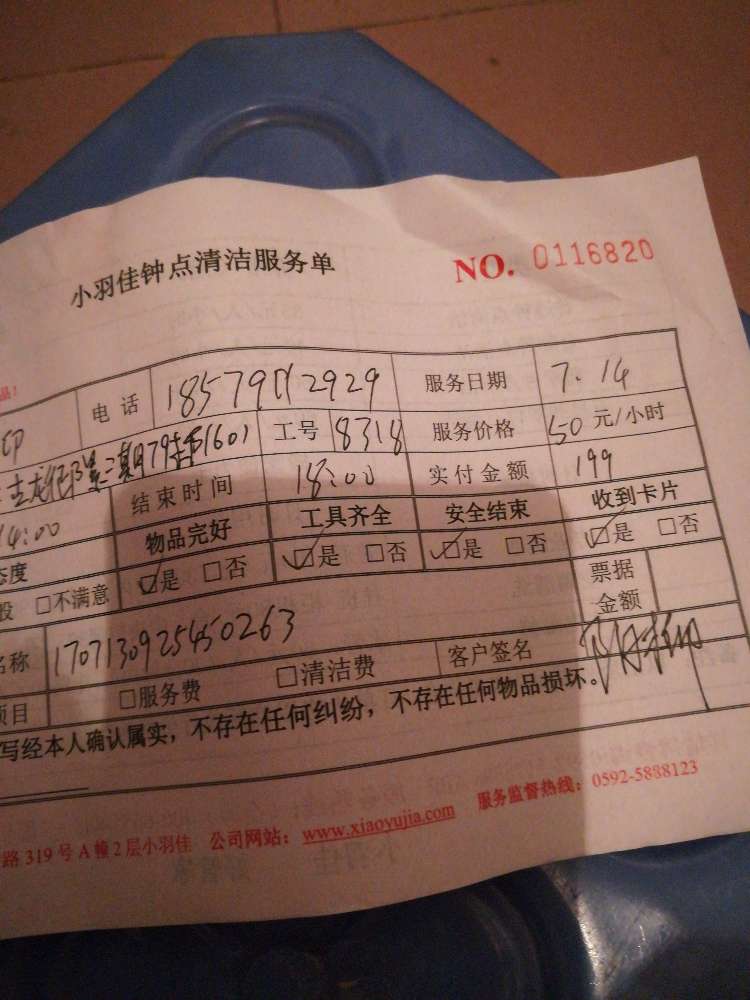 小羽佳钟点清洁服务单 NO. 0116820
品!
电话 服务日期 7.14
工号 8318 服务价格 50 元/小时
结束时间 18:00 实付金额 199
14:00 物品完好 工具齐全 安全结束 收到卡片
态度 □是 □否 □是 □否 □是 □否 □是 □否
般 □不满意 票据金额
名称 170713092545450263
项目 □服务费 □清洁费 客户签名
写经本人确认属实，不存在任何纠纷，不存在任何物品损坏。
路 319 号 A 幢 2 层小羽佳 公司网站：www.xiaoyujia.com 服务监督热线：0592-5888123